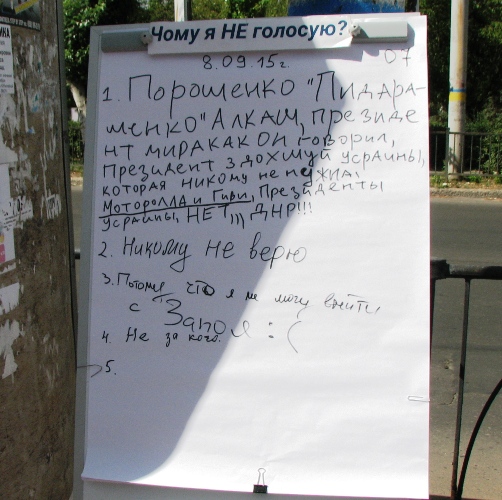 Чому я НЕ голосую?
8.09.15г. 07
1. Порошенко "Пидара-
шенко" Алкаш, президе
нт мира как он говорил,
Президент здохшуй Украины,
которая никому не нужна!
Моторолла и Гиви, Президенты
Украины, НЕТ,,, ДНР!!!
2. Никому не верю
3. Потому что я не могу выйти
с Запоя :(
4. Не за кого.
5.